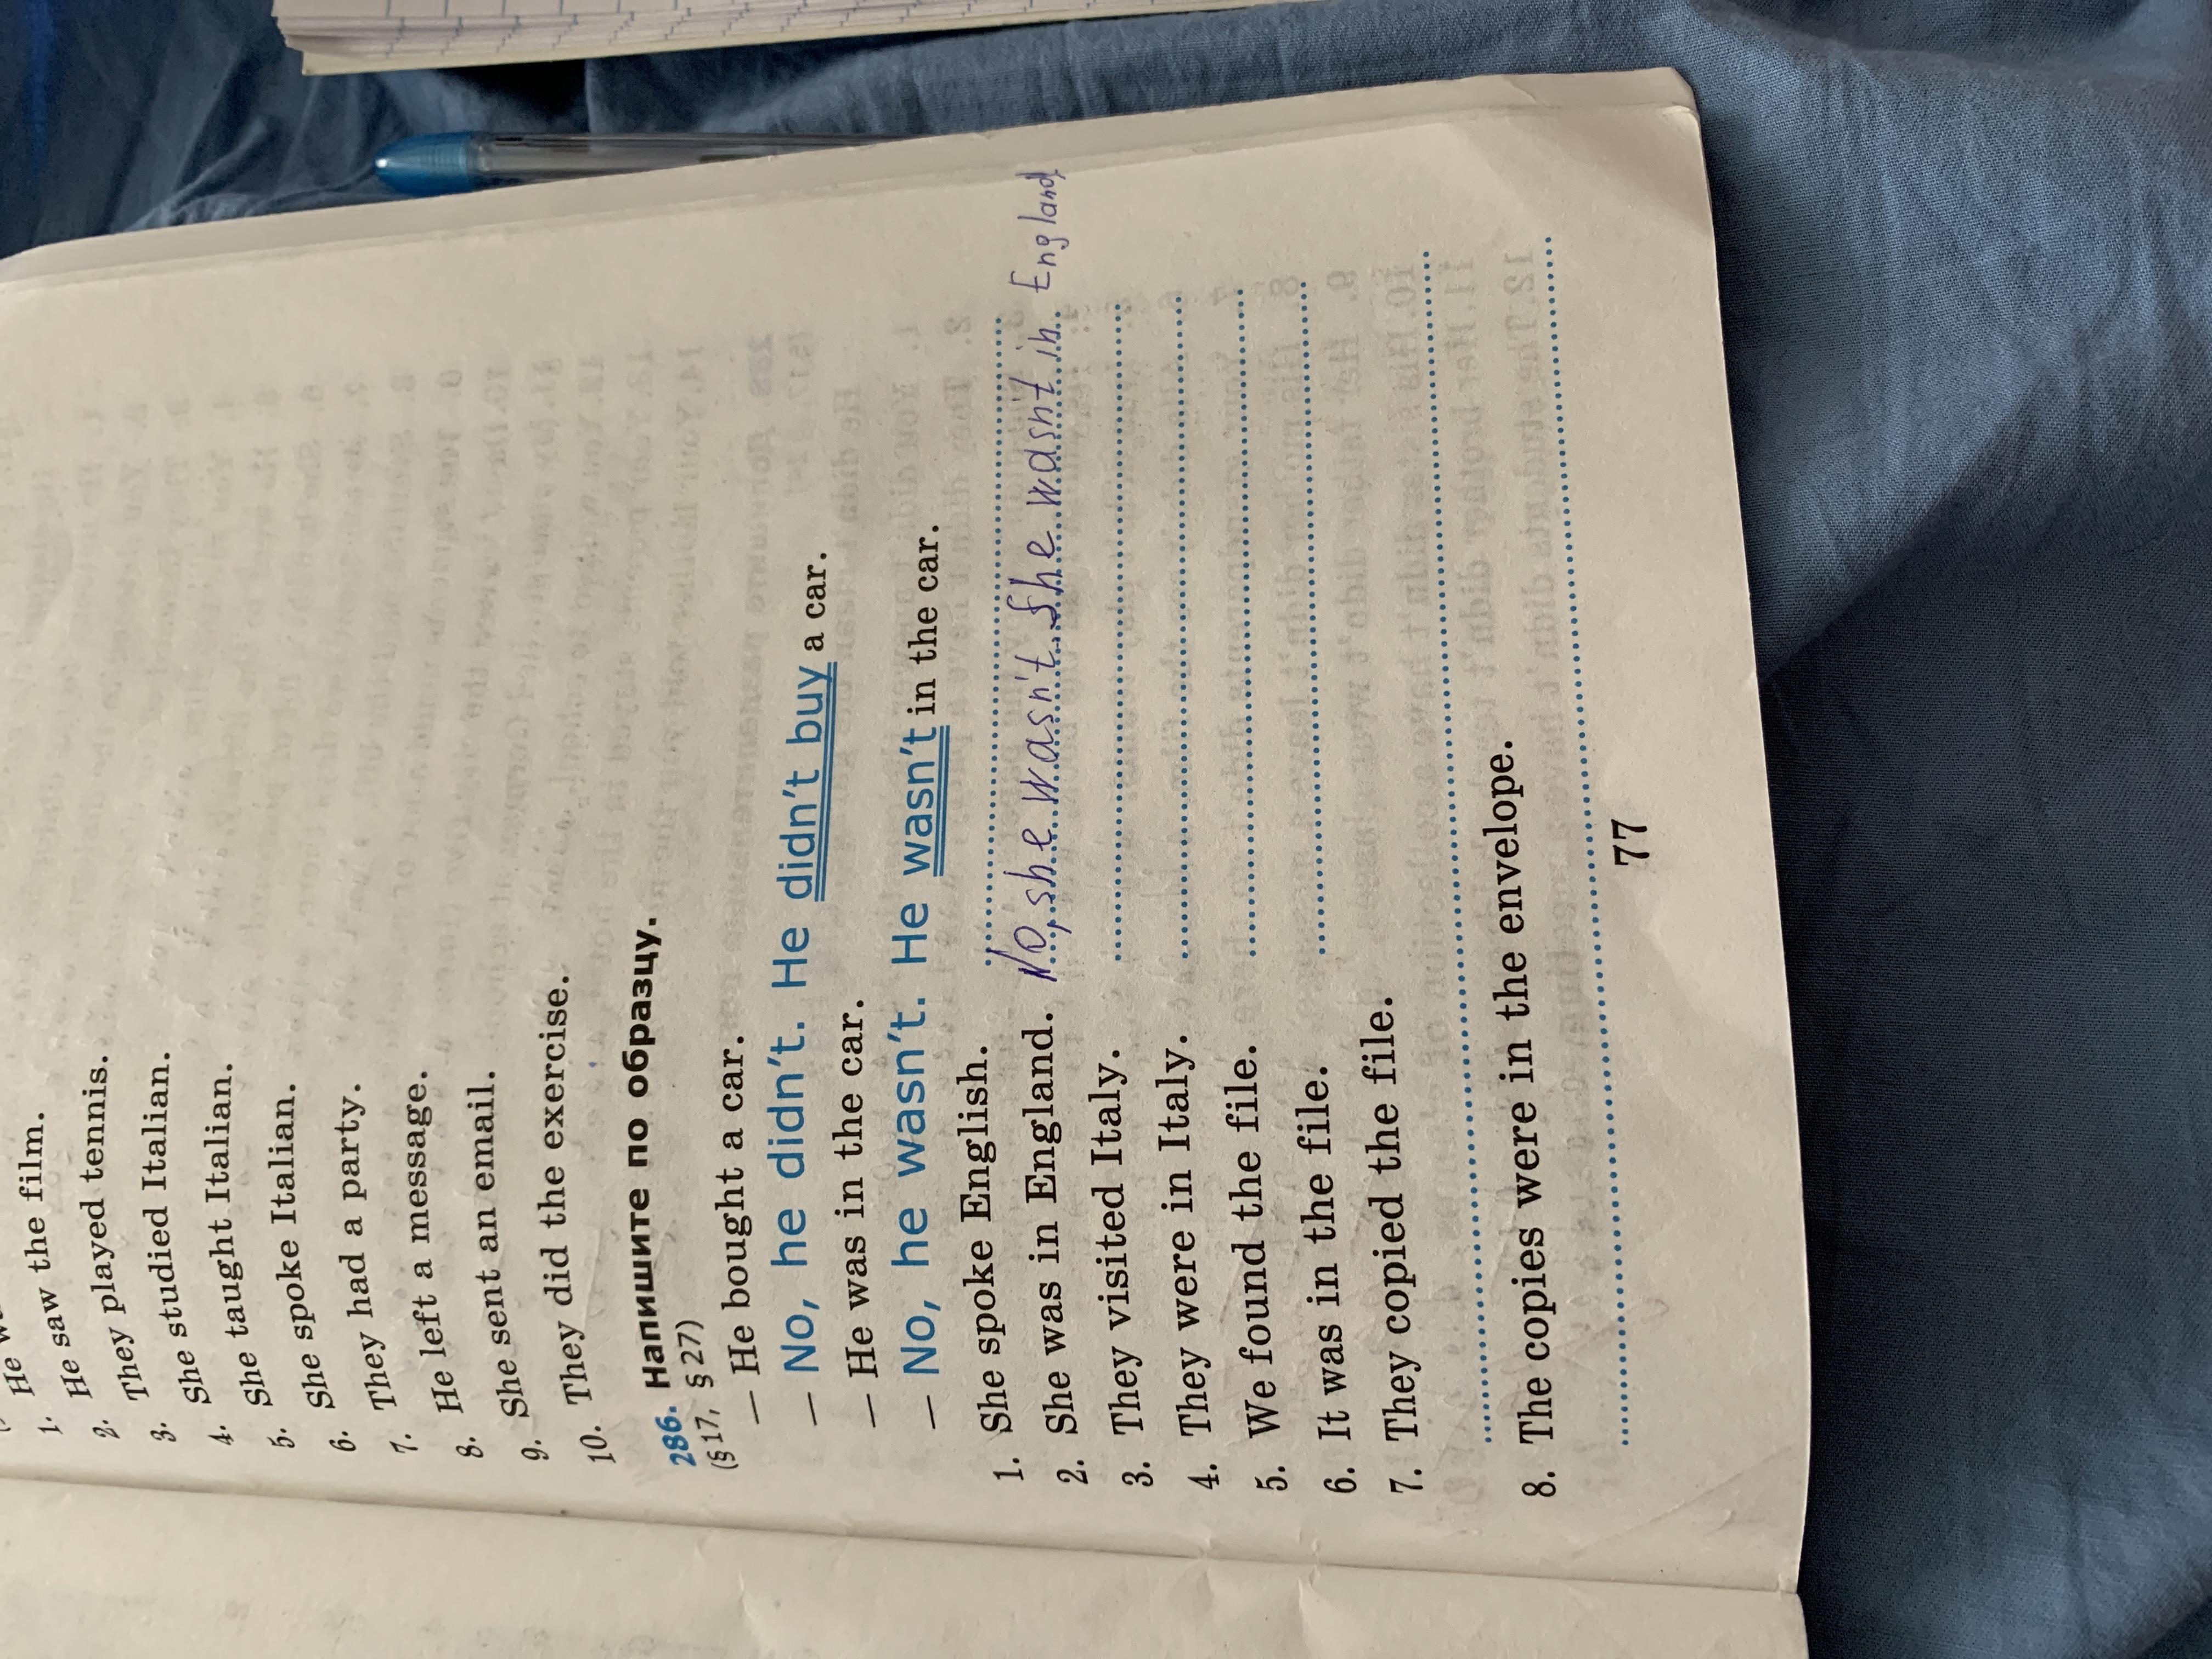 He
1. He saw the film.
2. They played tennis.
3. She studied Italian.
4. She taught Italian.
5. She spoke Italian.
6. They had a party.
7. He left a message.
8. She sent an email.
9. They did the exercise.
10.
286. Напишите по образцу.
(§17, §27)
— He bought a car.
— No, he didn't. He didn't buy a car.
— He was in the car.
— No, he wasn't. He wasn't in the car.
1. She spoke English.
2. She was in England. No, she wasn't. She wasnt in England
3. They visited Italy.
4. They were in Italy.
5. We found the file.
6. It was in the file.
7. They copied the file.
8. The copies were in the envelope.
77